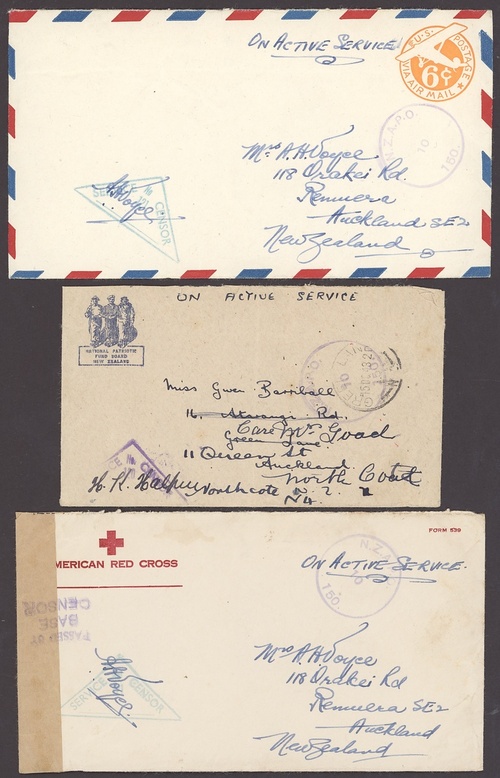 ON ACTIVE SERVICE
U.S. POSTAGE
VIA AIR MAIL
6¢
N.Z.A.P.O.
10
150.
Mrs A.H. Voyce
118 Orakei Rd.
Remuera
Auckland SE2
New Zealand
CENSOR
ON ACTIVE SERVICE
NATIONAL PATRIOTIC
FUND BOARD
NEW ZEALAND
Miss Gwen Barriball
Care Mrs Goad
11 Queen St
Auckland
Northcote
North Coted
N.Z.
FORM 539
AMERICAN RED CROSS
ON ACTIVE SERVICE.
N.Z.A.
10
150.
PASSED BY
BASE
CENSOR
CENSOR
Mrs A.H. Voyce
118 Orakei Rd
Remuera SE2
Auckland
New Zealand